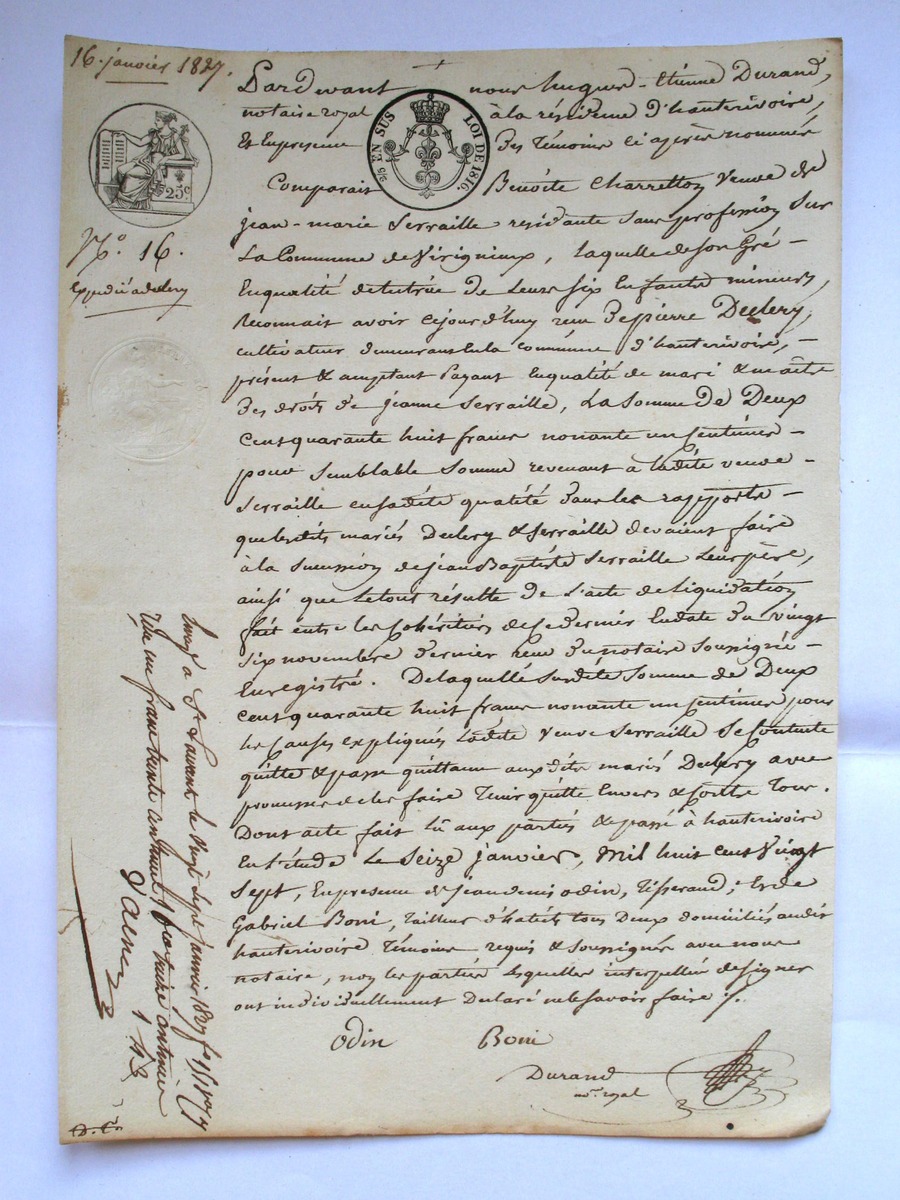 16. janvier 1827.
Pardevant nous hugues-Etienne Durand,
notaire royal à la résidence d'hauterivoire,
Et En présence Des Témoins ci après nommés
5/5 EN SUS LOI DE 1816.
25c
Comparait Benoite Charretton Veuve de
jean-marie Serraille residante sans profession Sur
La Commune de Virignieux, laquelle de son Gré -
En qualité de tutrice de Leurs six Enfants mineurs,
Reconnait avoir cejourd'huy reçu De pierre Decléry,
cultivateur demeurant En la commune d'hauterivoire, -
présent & acceptant Payant En qualité de mari & maître
Des droits De jeanne Serraille, La Somme De Deux
Cent quarante huit francs nonante un Centimes -
pour Semblable Somme revenant à ladite veuve -
Serraille en sadite qualité Dans les rapports -
que lesdits mariés Declery & Serraille devaient faire
à la Succession de jean Baptiste Serraille Leur père,
ainsi que Le tout résulte De L'acte de Liquidation
fait entre les Cohéritiers de ce dernier En date Du vingt
six novembre Dernier reçu Du notaire Soussigné -
Enregistré. De laquelle susdite Somme de Deux
cent quarante huit francs nonante un centimes pour
les Causes expliqués Ladite Veuve Serraille Se Contente
quitte & passe quittance aux dits mariés Declery avec
promesse de les faire Tenir quitte Envers & Contre Tous.
Dont acte fait Lû aux parties & passé à hauterivoire
En L'étude Le Seize janvier, Mil huit cent Vingt
Sept, En présence de jean denis odin, Tisserand; Et de
Gabriel Boni, Tailleur d'habits tous Deux domiciliés audit
hauterivoire Témoins requis & Soussignés avec nous
notaire, non les parties Lesquelles interpellées de signer
ont individuellement Déclaré ne le Savoir faire ./.
Odin Boni
Durand
nore. royal
No. 16.
Expédié à declery
Enregé à St Laurent le Vingt Sept janvier 1827 fo
reçu un franc trente centimes